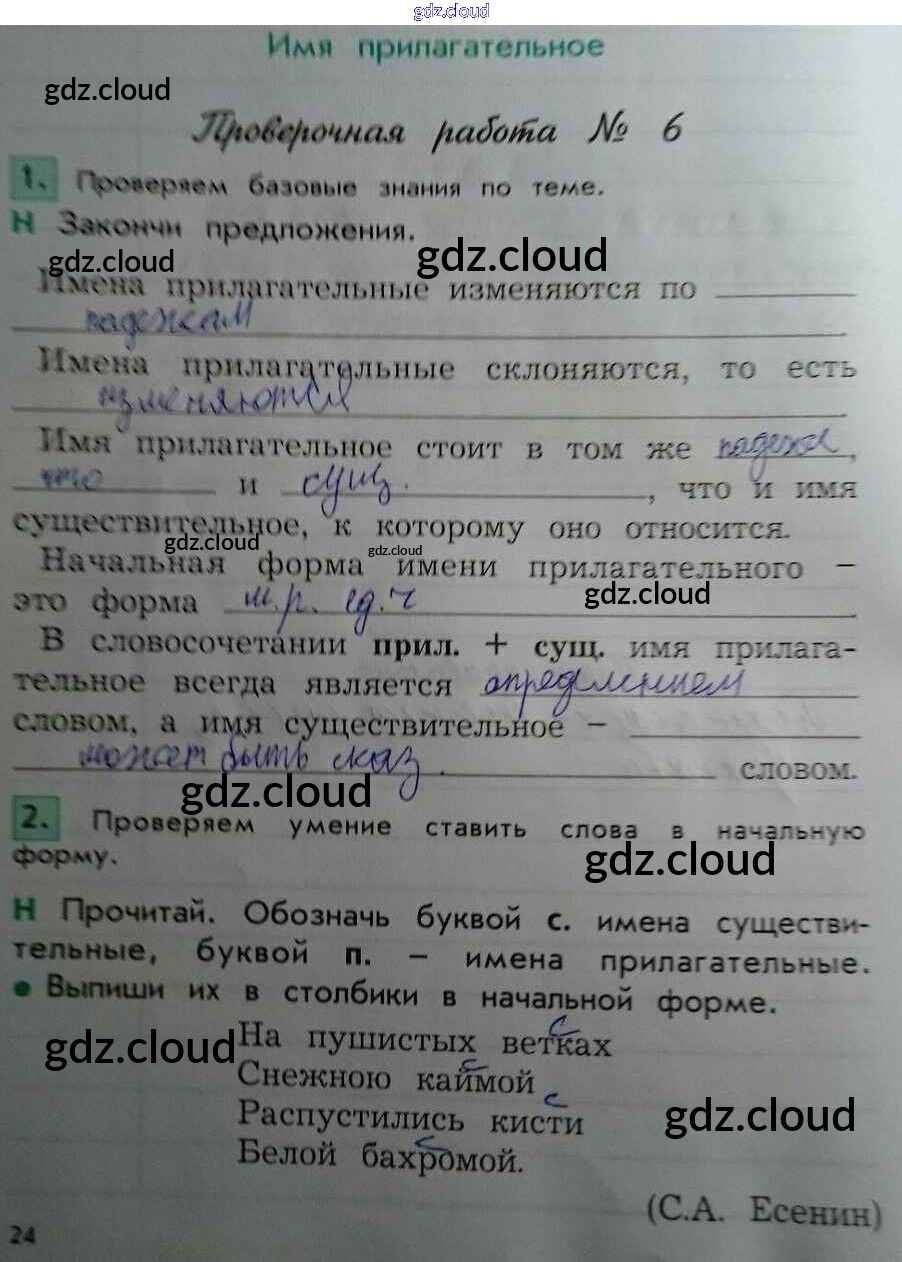 gdz.cloud
Имя прилагательное
gdz.cloud
Проверочная работа № 6
1. Проверяем базовые знания по теме.
Н Закончи предложения.
gdz.cloud gdz.cloud
Имена прилагательные изменяются по
падежам
Имена прилагательные склоняются, то есть
изменяются
Имя прилагательное стоит в том же падеже,
что и сущ. , что и имя
существительное, к которому оно относится.
gdz.cloud gdz.cloud
Начальная форма имени прилагательного –
это форма м.р. ед.ч
gdz.cloud
В словосочетании прил. + сущ. имя прилага-
тельное всегда является определением
словом, а имя существительное –
может быть сказ. словом.
gdz.cloud
2. Проверяем умение ставить слова в начальную
форму.
gdz.cloud
Н Прочитай. Обозначь буквой с. имена существи-
тельные, буквой п. – имена прилагательные.
• Выпиши их в столбики в начальной форме.
с
На пушистых ветках
gdz.cloud
с
Снежною каймой
с
Распустились кисти
gdz.cloud
с
Белой бахромой.
(С.А. Есенин)
24